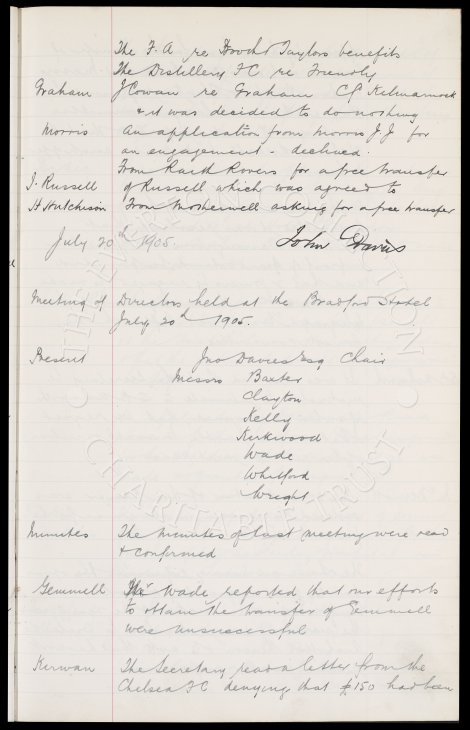 The F.A re Booth & Taylors benefits
The Distillery FC re Friendly
Graham J Cowan re Graham C/o Kilmarnock
& it was decided to do nothing
Morris An application from Morris J.J for
an engagement - declined.
From Raith Rovers for a free transfer
J. Russell of Russell which was agreed to
H Hutchison From Motherwell asking for a free transfer
July 20th 1905. John Davies
Meeting of Directors held at the Bradford Hotel
July 20th 1905.
Present Jno Davies Esq Chair
Messrs Baxter
Clayton
Kelly
Kirkwood
Wade
Whitford
Wright
Minutes The minutes of last meeting were read
& confirmed
Gemmell Wade reported that our efforts
to obtain the transfer of Gemmell
were unsuccessful
Kirwan The Secretary read a letter from the
Chelsea FC denying that £150 had been
THE EVERTON COLLECTION
CHARITABLE TRUST